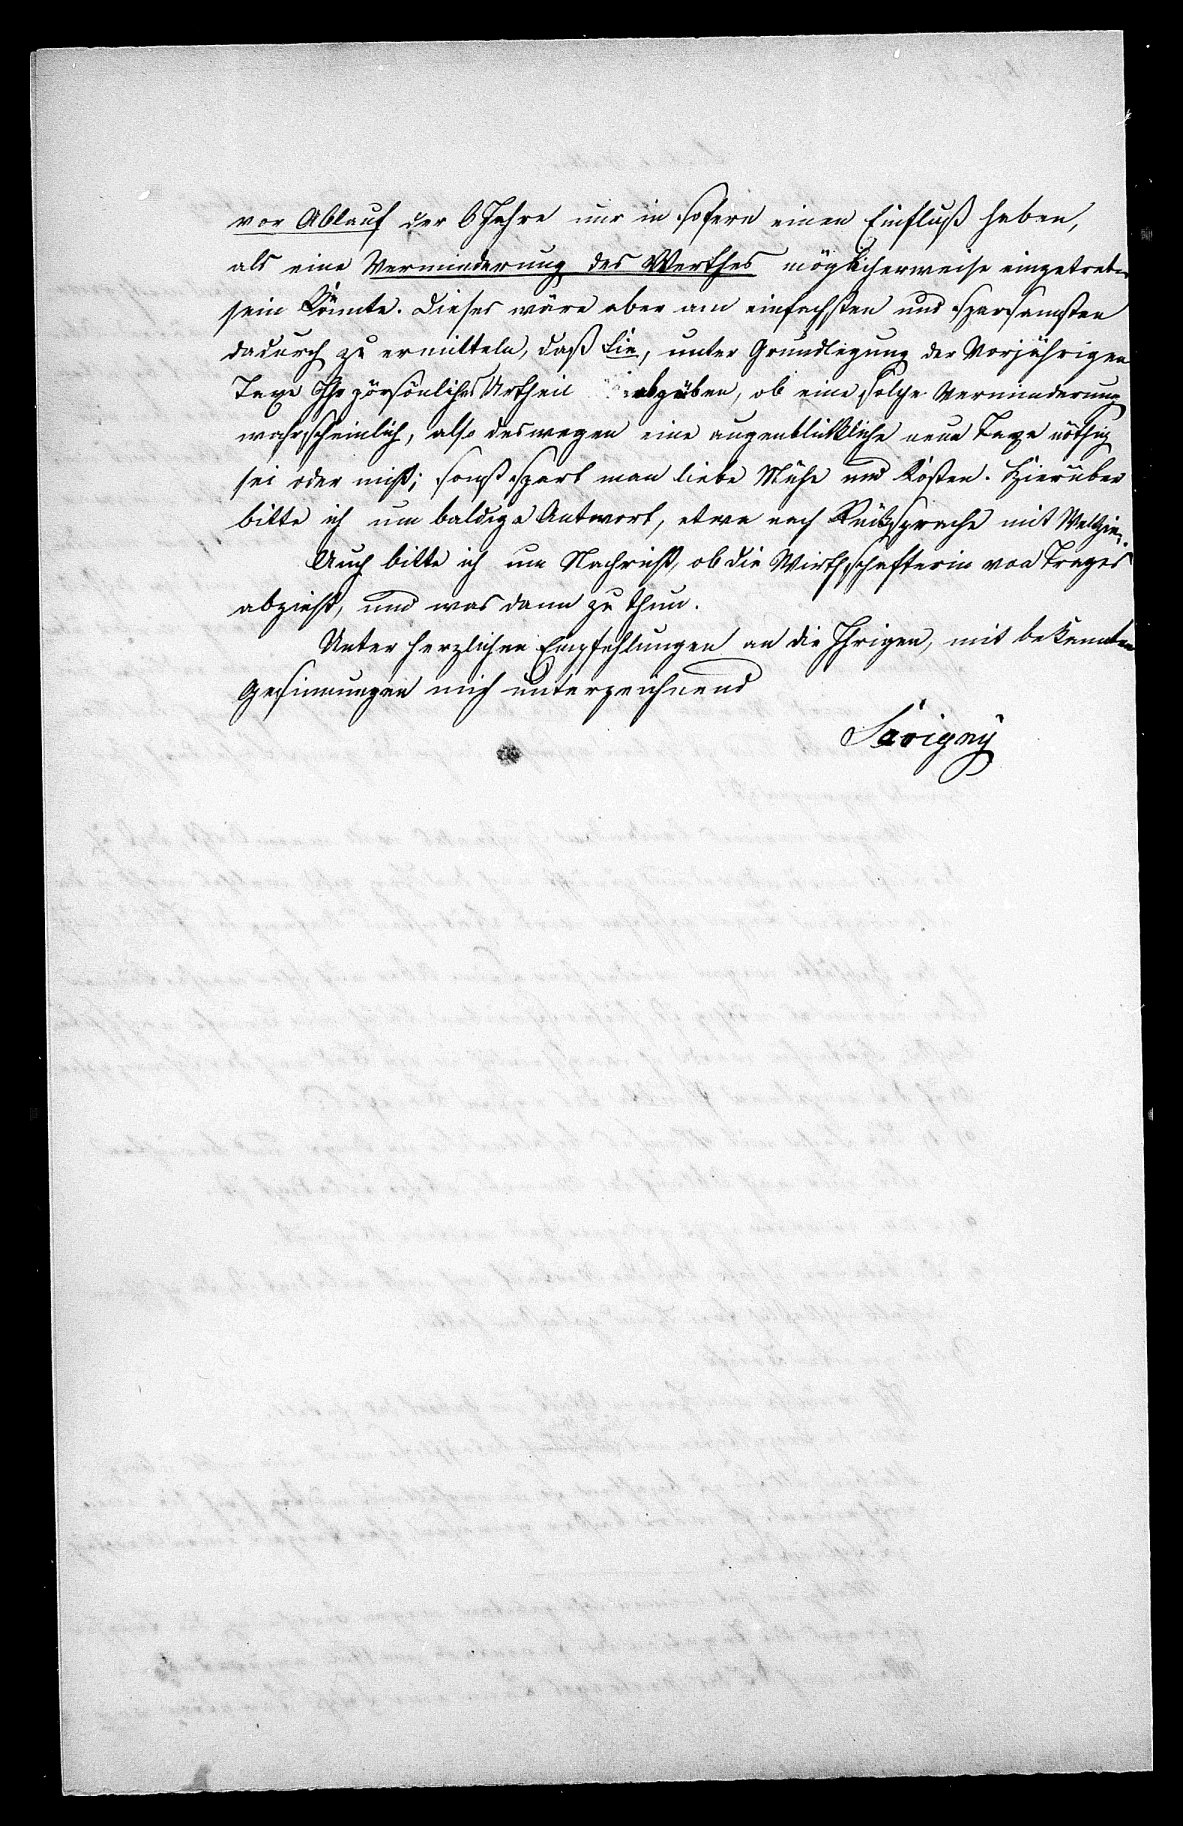 vor Ablauf der 6 Jahre nur in sofern einen Einfluß haben,
als eine Verminderung des Werthes möglicherweise eingetreten
sein könnte. Dieses wäre aber am einfachsten und sparsamsten
dadurch zu ermitteln, daß Sie, unter Grundlegung der Vorjährigen
Taxe Ihr persönliches Urtheil abgäben, ob eine solche Verminderung
wahrscheinlich, also deswegen eine augenblickliche neue Taxe nöthig
sei oder nicht; sonst spart man liebe Mühe und Kosten. Hierüber
bitte ich um baldige Antwort, etwa nach Rücksprache mit
Auch bitte ich um Nachricht, ob die Wirthschafterin von Trages
abzieht, und was dann zu thun.
Unter herzlichen Empfehlungen an die Ihrigen, mit bekannten
Gesinnungen mich unterzeichnend
Savigny